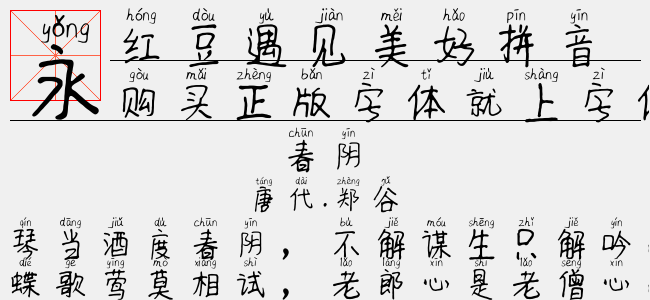 yǒng
永
hóng dòu yù jiàn měi hǎo pīn yīn
红豆遇见美好拼音
gòu mǎi zhèng bǎn zì tǐ jiù shàng zì
购买正版字体就上字
chūn yīn
春阴
táng dài zhèng gǔ
唐代.郑谷
qín dāng jiǔ dù chūn yīn bù jiě móu shēng zhǐ jiě yín
琴当酒度春阴，不解谋生只解吟
dié gē yīng mò xiāng shì lǎo láng xīn shì lǎo sēng xīn
蝶歌莺莫相试，老郎心是老僧心